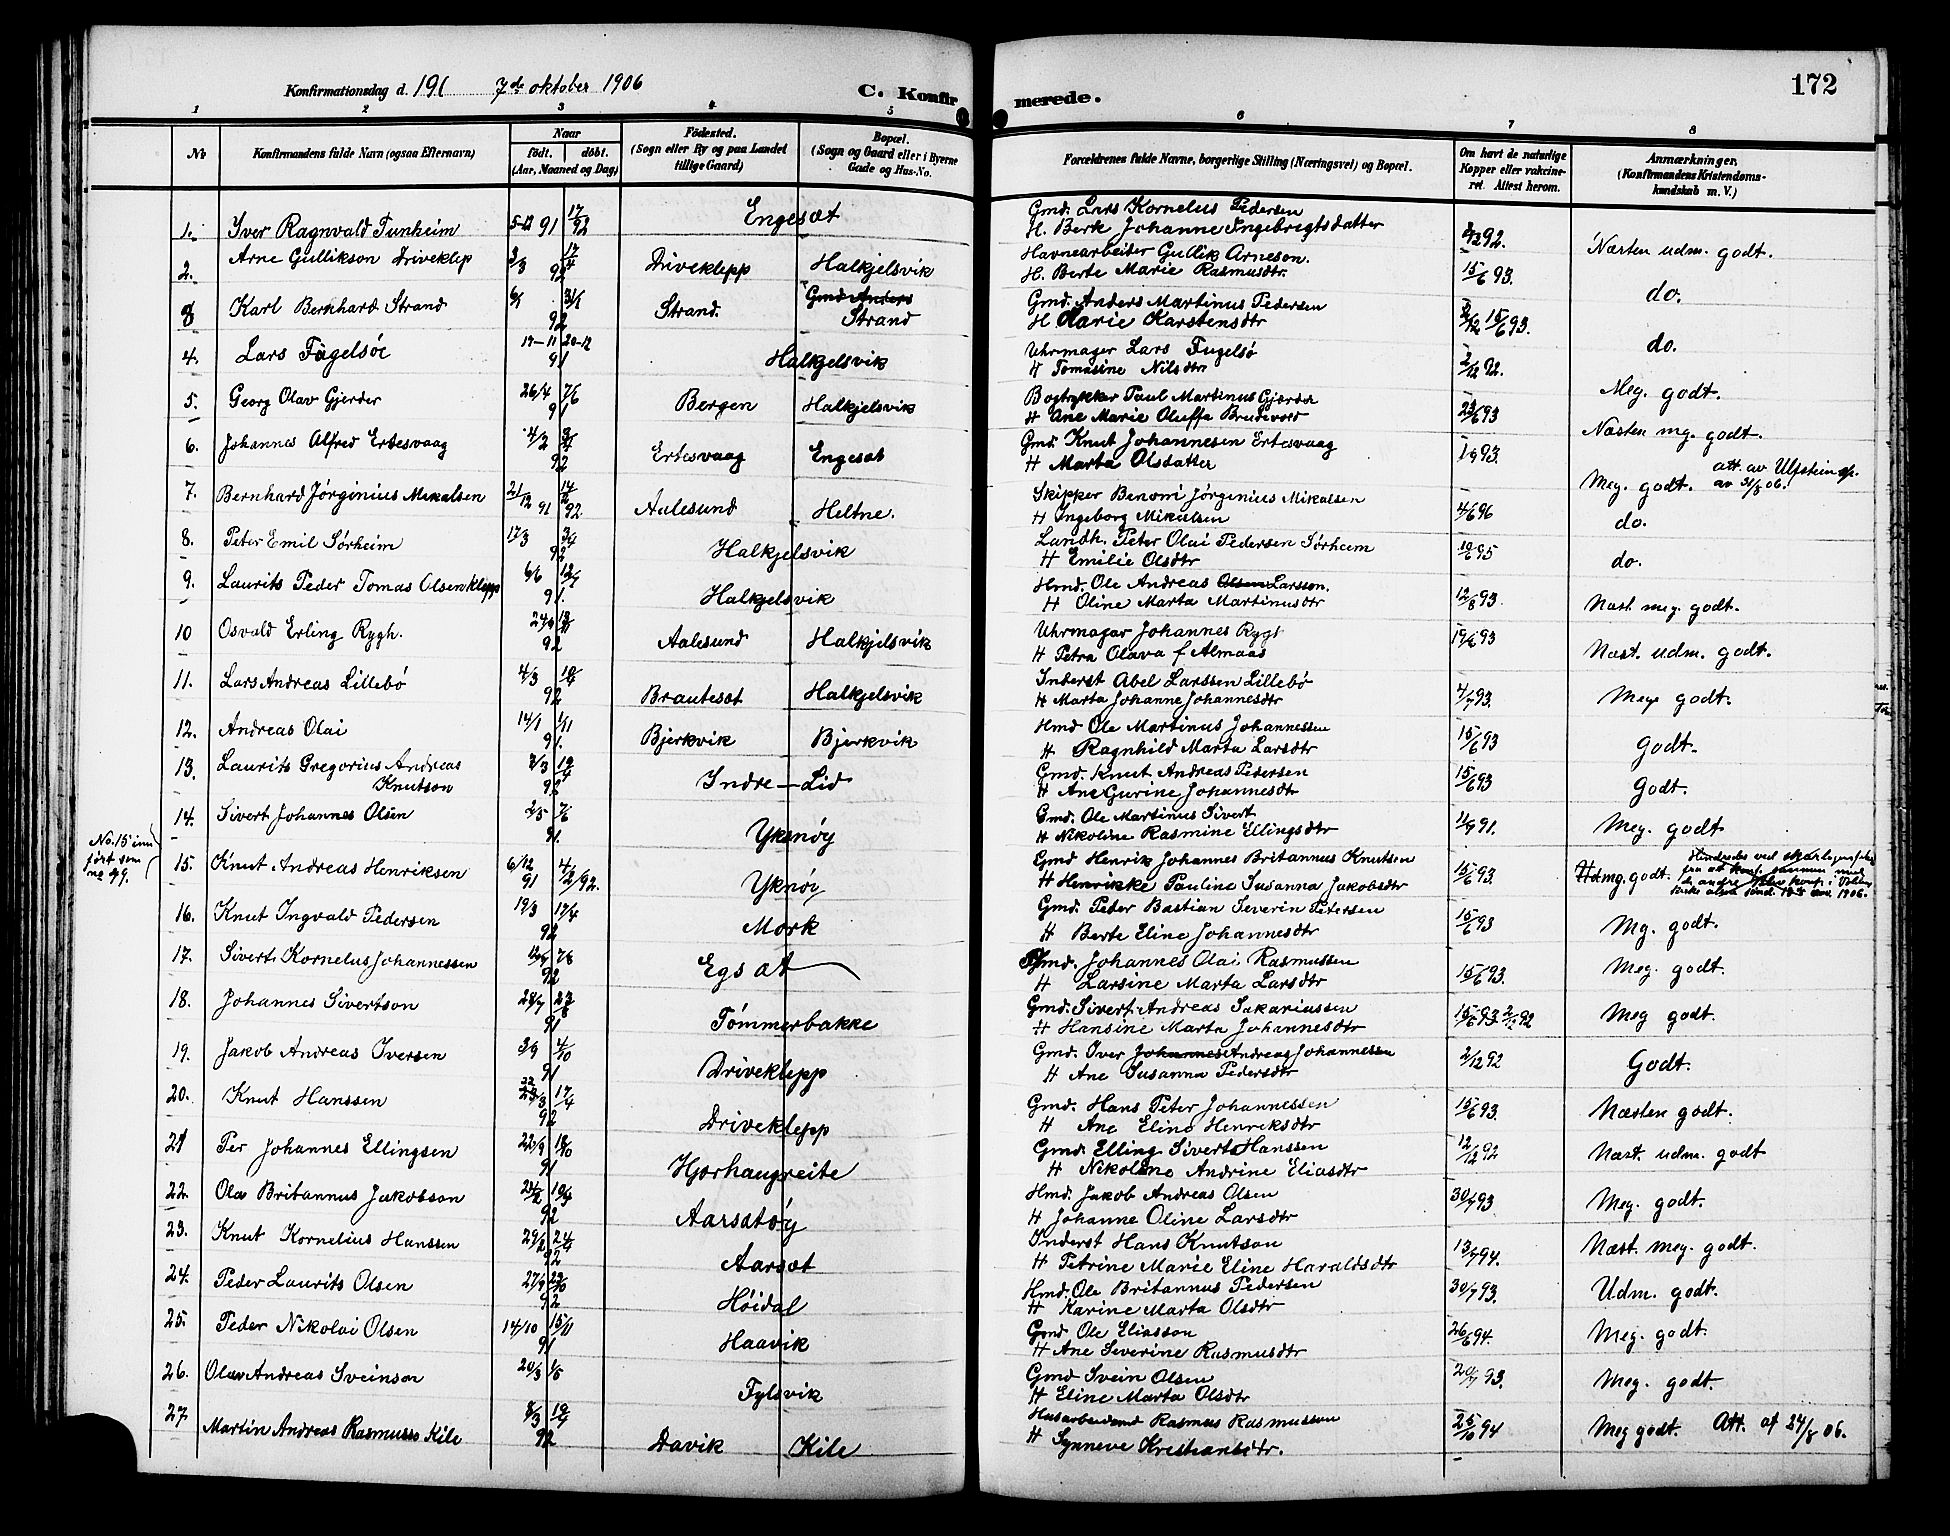 Konfirmationsdag d. 191 7de oktober 1906
C. Konfirmerede.
172
1 2 3 4 5 6 7 8
No
Konfirmandens fulde Navn (ogsaa Efternavn)
Naar
født. døbt.
(Aar, Maaned og Dag)
Fødested.
(Sogn eller By og paa Landet
tillige Gaard)
Bopæl.
(Sogn og Gaard eller i Byerne
Gade og Hus-No.
Forældrenes fulde Navne, borgerlige Stilling (Næringsvei) og Bopæl.
Om havt de naturlige
Kopper eller vakcine-
ret. Attest herom.
Anmærkninger,
(Konfirmandens Kristendoms-
kundskab m. V.)
1. Yver Ragnvald Tunheim 5-12 91 17/ 92 Engesæt
Gmd. Lars Kornelus Pedersen
H. Berk Johanne Ingebregtsdatter 92. Næsten udm. godt.
2. Arne Gullikson Driveklep 3/3 17/4 92 Driveklepp Halkjelsvik
Havnearbeider Gullik Arneson.
H. Berte Marie Rasmusdtr. 15/6 93. do.
3 Karl Bernhard Strand 92 Strand. Gmd Anders Strand
Gmd. Anders Martinus Pedersen
H Marie Karstensdtr 2/12 15/6 93. do.
4. Lars Fugelsøe 17-11 20-12 91 Halkjelsvik
Uhrmager Lars Fugelsø
H Tomasine Nilsdtr 2/12 92. Meg. godt.
5. Georg Olav Gjerder 26/4 7/6 91 Bergen Halkjelsvik
Bogtrykker Paul Martinus Gjærde
H Ane Marie Oluffa Brudevold 23/6 93 Næsten mg. godt.
6. Johannes Alfred Ertesvaag 4/2 92 Ertesvaag Engesæt
Gmd. Knut Johannesen Ertesvaag
H Marta Olsdatter 93. Meg. godt. att. av Ulfstein sp.
av 31/8 06.
7. Bernhard Jørginius Mikalsen 21/12 91 14/2 92 Aalesund Heltne.
Skipper Benoni Jørginius Mikalsen
H Ingeborg Mikalsen 4/6 96 do.
8. Peter Emil Sørheim 17/3 3/4 92 Halkjelsvik
Landh. Peter Olai Pedersen Sørheim
H Emilie Olsdtr 19/6 95 do.
9. Laurits Peder Tomas Olsen klepp 6/6 12/7 91 Halkjelsvik
Hmd. Ole Andreas Olsen Larsson.
H Oline Marta Martinusdtr 12/8 93. Næst. meg. godt.
10 Osvald Erling Rygh. 92 Aalesund Halkjelsvik
Uhrmager Johannes Rygh
H Petra Olava f Almaas 19/6 93 Næst. udm. godt.
11. Lars Andreas Lillebø 4/3 10/4 92 Brautesæt Halkjelsvik
Inderst Abel Larssen Lillebø
H Marta Johanne Johannesdtr 4/7 93. Meg godt.
12. Andreas Olai 14/1 1/11 91. Bjerkvik Bjerkvik
Hmd Ole Martinus Johannessen
H Ragnhild Marta Larsdtr 15/6 93 Godt.
13. Laurits Gregorius Andreas
Knutson 3/3 19/4 92 Indre-Lid
Gmd. Knut Andreas Pedersen
H Ane Gurine Johannesdtr 15/6 93 Godt.
14. Sivert Johannes Olsen 2/5 7/6 91. Yksnøy
Gmd. Ole Martinus Sivert
H Nikoline Rasmine Ellingsdtr 91. Meg. godt
No. 15 inn
ført som
no 29.
15. Knut Andreas Henriksen 6/12 91 4/2/92. Yksnøy
Gmd Henrik Johannes Britannus Knutsen
H Henrikke Pauline Susanna Jakobsdtr 15/6 93. Udmg. godt.
16. Knut Ingvald Pedersen 19/3 17/4 92 Mork
Gmd. Peter Bastian Severin Petersen
H Berte Eline Johannesdtr 15/6 93 Mg. godt.
17. Sivert Kornelus Johannessen 92 Egsæt
Gmd. Johannes Olai Rasmussen
H Larsine Marta Larsdtr 15/6 93. Meg. godt.
18. Johannes Sivertson 91 Tømmerbakke
Gmd. Sivert Andreas Sakariassen
H Hansine Marta Johannesdtr 15/6 93 2/12 92 Meg godt.
19. Jakob Andreas Iversen 3/9 4/10 91 Driveklepp
Gmd. Iver Johannes Andreas Johannessen
H Ane Susanna Pedersdtr 2/12 92 Godt.
20. Knut Hanssen 17/4 92 Driveklepp
Gmd. Hans Peter Johannessen
H Ane Eline Henriksdtr 15/6 93. Næsten godt.
21 Per Johannes Ellingsen 22/9 18/10 91 Hjorhaugreite
Gmd. Elling Siverts Hanssen
H Nikoline Andrine Eliasdtr 12/12 92 Næst. udm. godt
22. Olav Britannus Jakobson 92 Aarsætøy
Hmd. Jakob Andreas Olsen
H Johanne Oline Larsdtr 30/7 93. Meg. godt.
23. Knut Kornelius Hanssen 29/2 24/4 92 Aarsæt
Inderst Hans Knutson
H Petrine Marie Eline Haraldsdtr 13/7 94. Næst. meg. godt.
24. Peder Laurits Olsen 27/9 23/10 92 Høidal
Hmd. Ole Britannus Pedersen
H Karine Marta Olsdtr 30/7 93. Udm. godt.
25. Peder Nikolai Olsen 14/10 15/11 91 Haavik
Gmd Ole Eliasson
H Ane Severine Rasmusdtr 26/6 94. Meg. godt.
26. Olav Andreas Sveinson 20/3 1/5 Fylsvik
Gmd Svein Olsen
H Eline Marta Olsdtr 93. Meg. godt.
27 Martin Andreas Rasmuss Kile 8/3 19/4 92 Davik Kile
Husarbeidsmd Rasmus Rasmusson
H Synneve Kristiansdtr. 25/10 94 Meg godt. Att. af 24/8 06.